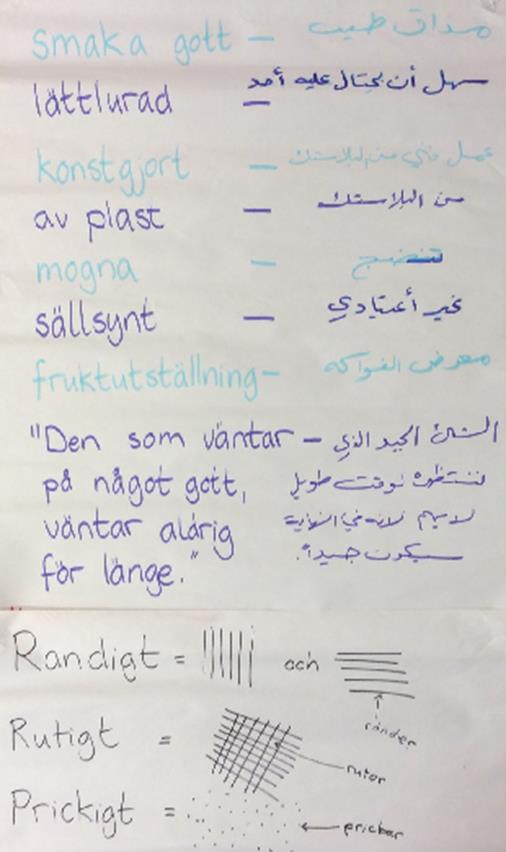 smaka gott – مذاق طيب
lättlurad – سهل أن يحتال عليه أحد
konstgjort – عمل فني من البلاستك
av plast – من البلاستك
mogna – تنضج
sällsynt – غير أعتيادي
fruktutställning – معرض الفواكه
"Den som väntar – الشئ الجيد الذي
på något gott, ننتظره لوقت طويل
väntar aldrig لا يهم لانه في النهاية
för länge." سيكون جيداً.
Randigt = och
ränder
Rutigt =
rutor
Prickigt =
prickar